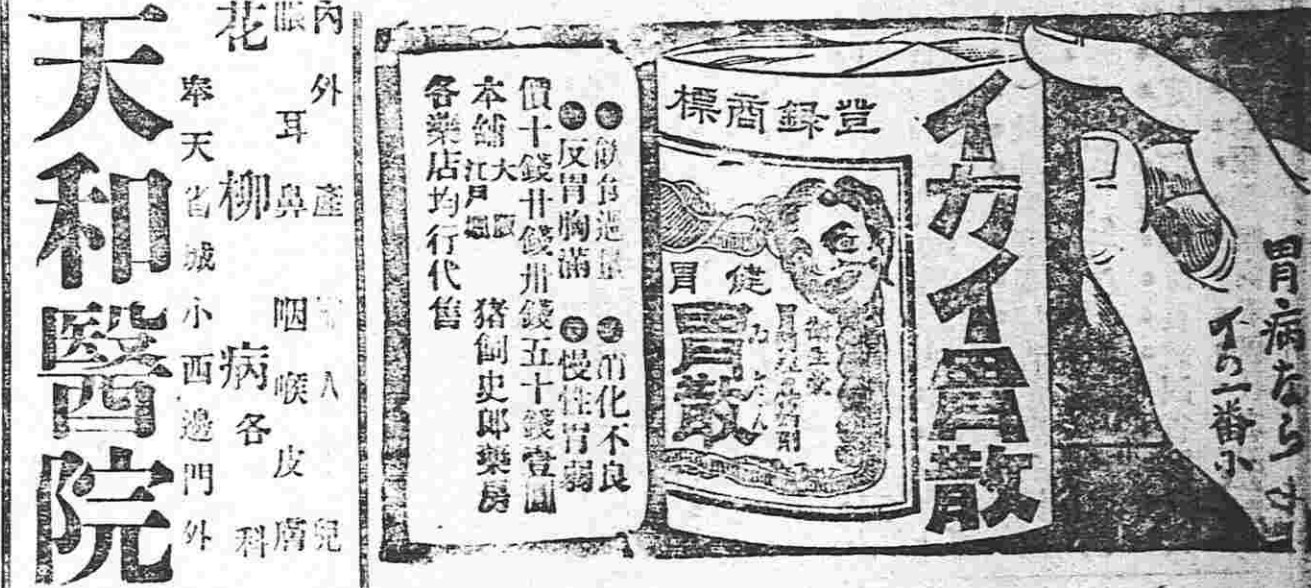 胃病なら
イの一番小
イカイ胃散
標商録登
胃健
胃散
●飲食過量 ●消化不良
●反胃胸滿 ●慢性胃弱
價十錢廿錢卅錢五十錢壹圓
本舖 大阪 江戶堀 猪飼史郎藥房
各藥店均行代售
內外產婦人兒
眼耳鼻咽喉皮膚
花柳病各科
奉天省城小西邊門外
天和醫院